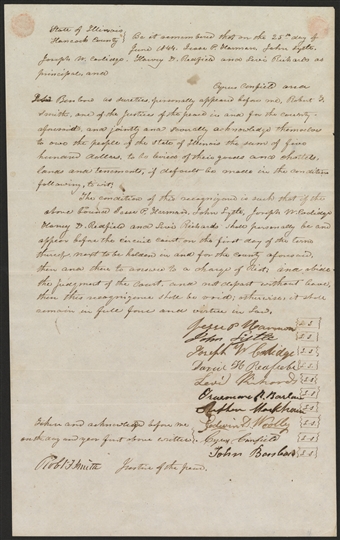 State of Illinois
Hancock County
Be it remembered that on the 25th day of
June 1844. Jesse P. Harmon John Lytle
Joseph W. Coolidge, Harvey D. Redfield and Levi Richards as
principals, and
Cyrus Canfield and
John Bosshard as sureties, personally appeared before me, Robert F.
Smith, one of the Justices of the peace in and for the county
aforesaid, and jointly and severally acknowledge themselves
to owe the people of the State of Illinois the sum of five
hundred dollars, to be levied of their goods and chattels,
lands and tenements, if default be made in the condition
following, to wit:
The condition of this recognizance is such that if the
above bound Jesse P. Harmon, John Lytle, Joseph W. Coolidge
Harvey D. Redfield and Levi Richards shall personally be and
appear before the circuit court on the first day of the term
thereof next to be holden in and for the county aforesaid,
then and there to answer to a charge of Riot, and abide
the judgement of the court, and not depart without leave,
then this recognizance shall be void; otherwise it shall
remain in full force and virtue in law,
Jesse P Harmon L S
John Lytle L S
Joseph W Coolidge L S
H Redfield L S
Levi Richards L S
L S
Stephen Markham L S
Edwin D. Woolly L S
Cyrus Canfield L S
John Bosshard L S
Taken and acknowledged before me
on the day and year first above written
Robt F Smith Justice of the peace